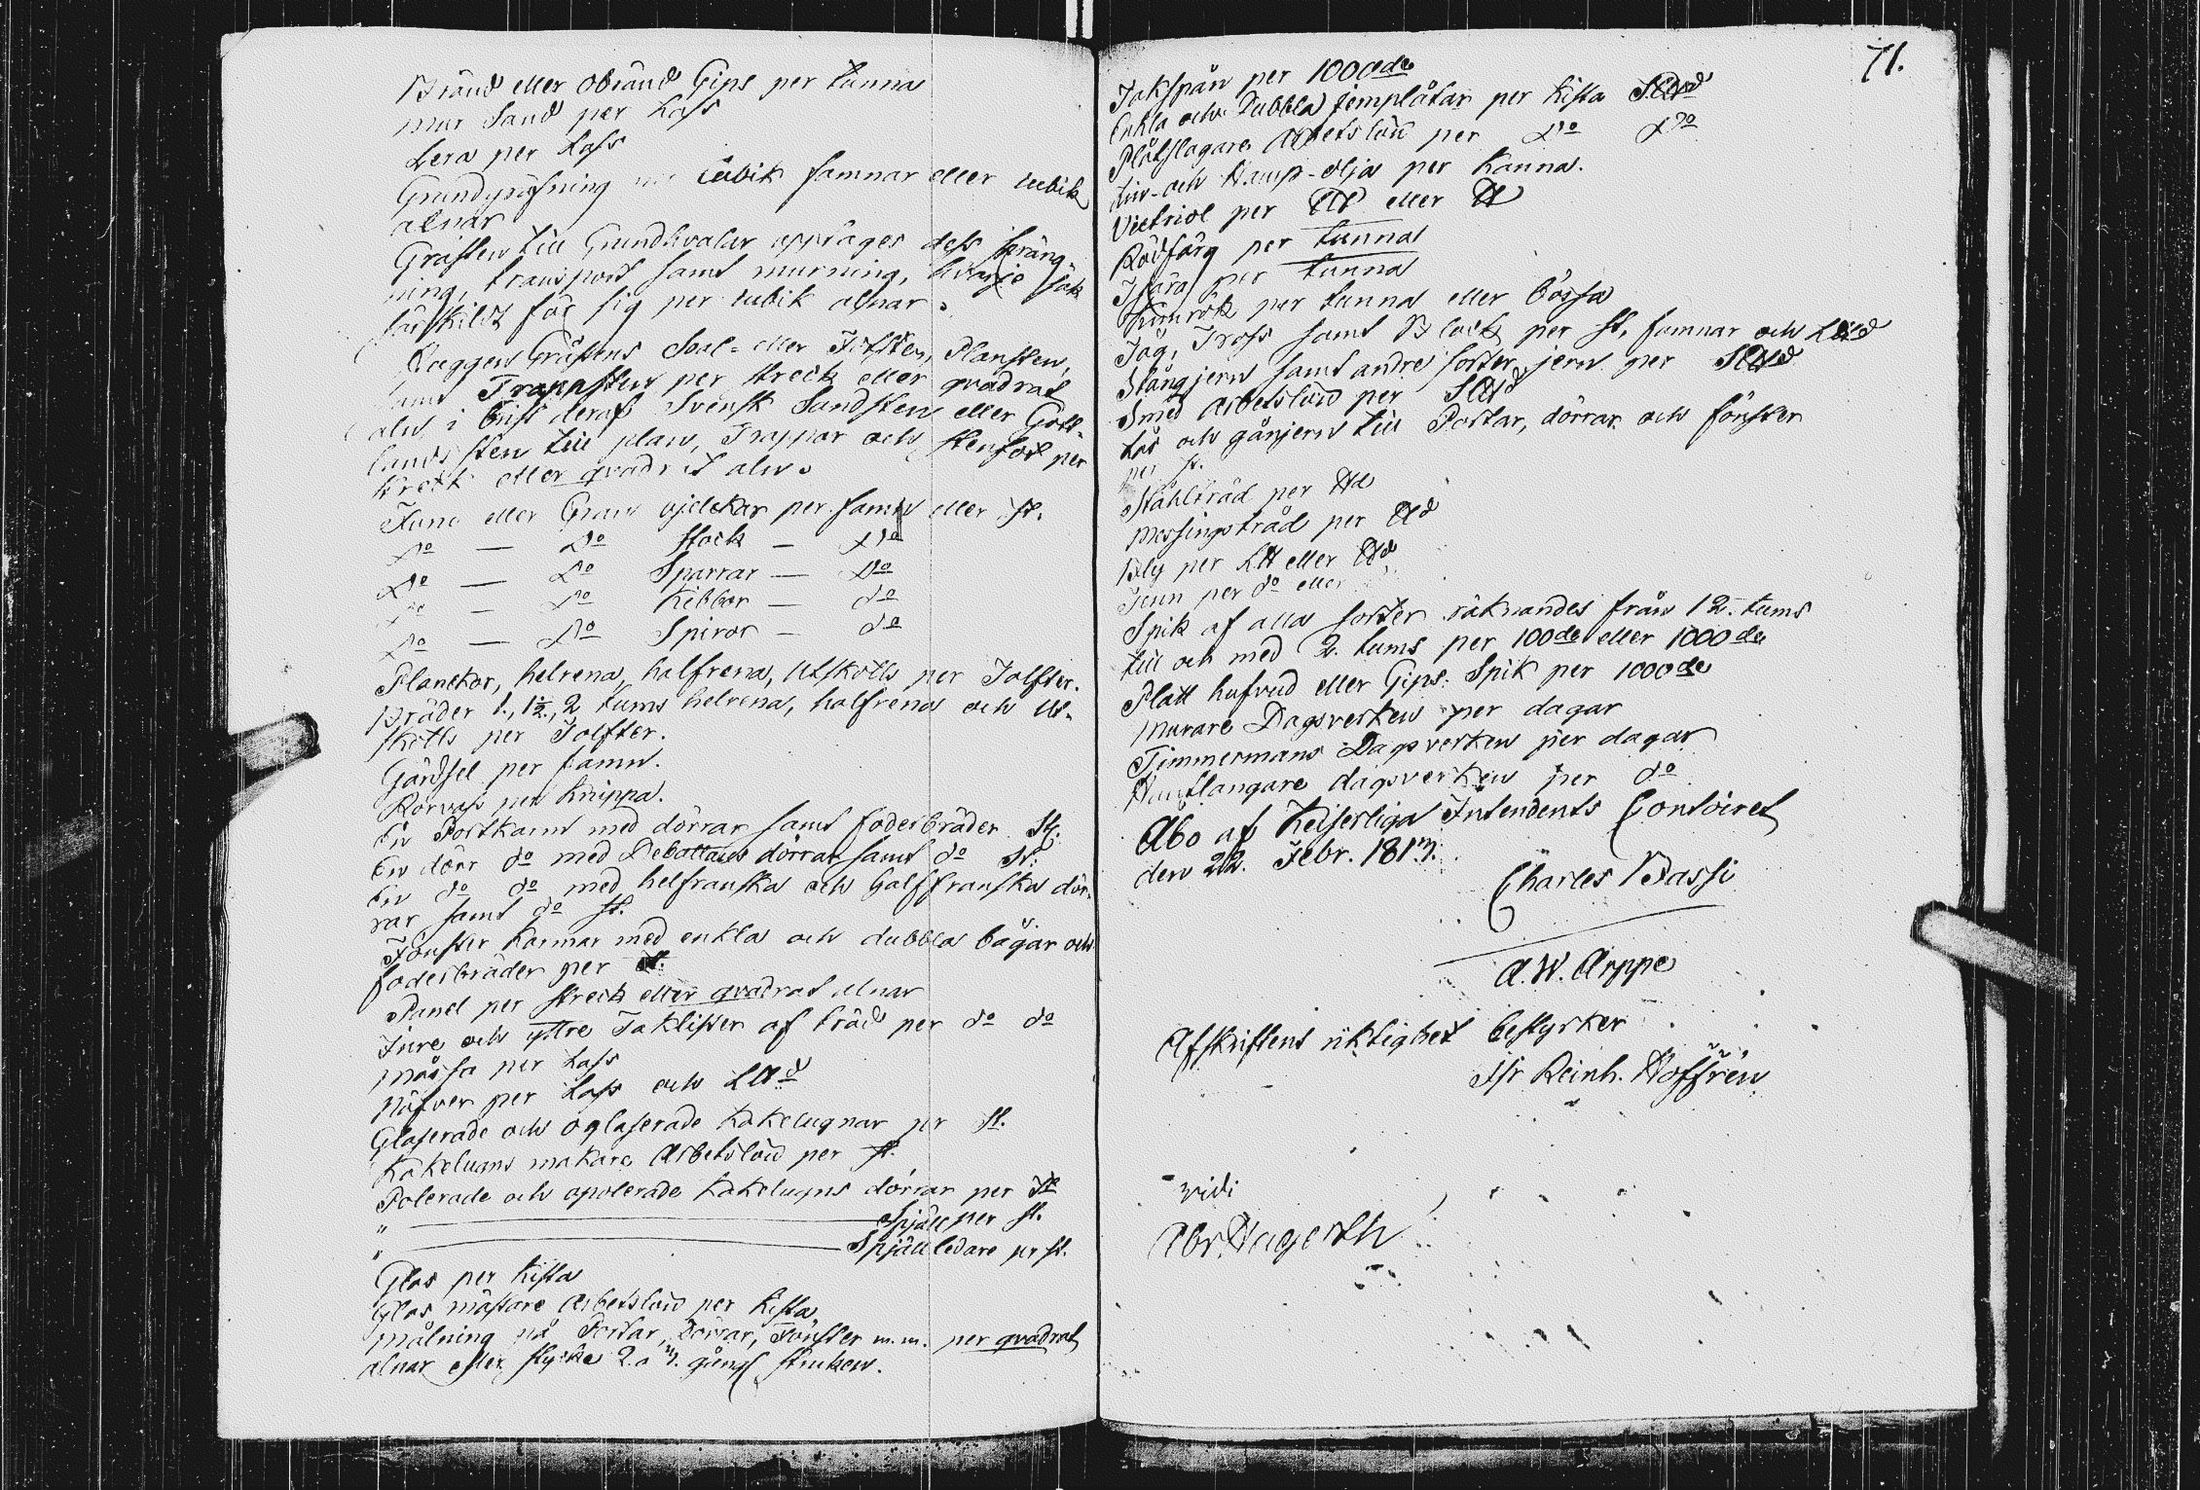 Bränd eller obränd Gips per tunna
Mur Sand per Lass
Lera per Lass
Grundgräfning cubik famnar eller cubik
alnar
Gråsten till Grundhvalar uppräges dess spräng-
ning, transport samt murning, hvarje sak
särskildt för sig per cubik alnar.
Huggen Gråstens Sval- eller Fotsten, Plansten,
samt Trappsten per streck eller qvadrat
aln, i brist deraf Svensk Sandsten eller Gott-
lands sten till plan, Trappor och stenfot per
streck eller qvadrat aln.
Furu eller Gran vjelckar per famn eller st.
Do — Do Stock — Do
Do — Do Sparrar — Do
Do — Do Kibbor — do
Do — Do Spiror — do
Planckor, helrena, halfrena, Utskotts per Tolfter.
Bräder 1., 1½., 2 tums helrena, halfrena och Ut-
skotts per Tolfter.
Gärdsel per famn.
Rörvass per Knippa.
En Portkarm med dörrar samt foderbräder St:
En dörr do med Debattans dörrar samt do St:
En do do med helfranska och halffranska dör-
rar samt do st.
Fönster karmar med enkla och dubbla bågar och
foderbräder per st.
Panel per streck eller qvadrat alnar
Inre och yttre Taklister af träd per do do
Måssa per Lass
Näfver per Lass och L℔d
Glaserade och oglaserade Kakelugnar pr st.
Kakelugns makare Arbetslön per st.
Polerade och opolerade Kakelugns dörrar per st
" ——— Spjäll per st.
" ——— Spjälledare pr st.
Glas per Kista
Glas mästare Arbetslön per Kista
Målning på Portar, Dörrar, Fönster m.m. per qvadrat
alnar eller stycke 2. a 3. gångr struken.
71.
Takspån per 1000de
Enkla och Dubbla jernplåtar per Kista S℔d
Plåtslagare Arbetslön per Do Do
Lin- och Hamp-olja per Kanna.
Victriol per L℔ eller ℔
Rödfärg per tunna
Tjära per tunna
Kimrök per tunna eller bössa
Tåg, Tross samt Block per st. famnar och L℔d
Stångjern samt andre sorter jern per S℔d
Smed Arbetslön per S℔d
Lås och gånjern till Portar, dörrar och fönster
per st.
Ståhltråd per ℔d
Messingstråd per ℔d
Bly per L℔ eller ℔d
Tenn per do eller
Spik af alla sorter räknandes från 12. tums
till och med 2. tums per 100de eller 1000de
Platt hufvud eller Gips. Spik per 1000de
Murare Dagsverken per dagar
Timmermans Dagsverken per dagar
Handlangare dagsverken per do
Åbo af Keijserliga Intendents Contoiret
den 22. Febr. 1813.
Charles Bassi
A. W. Arppe
Afskriftens riktighet bestyrker
Is: Reinh. Hoffrén
vidi
Abr. Hagerth